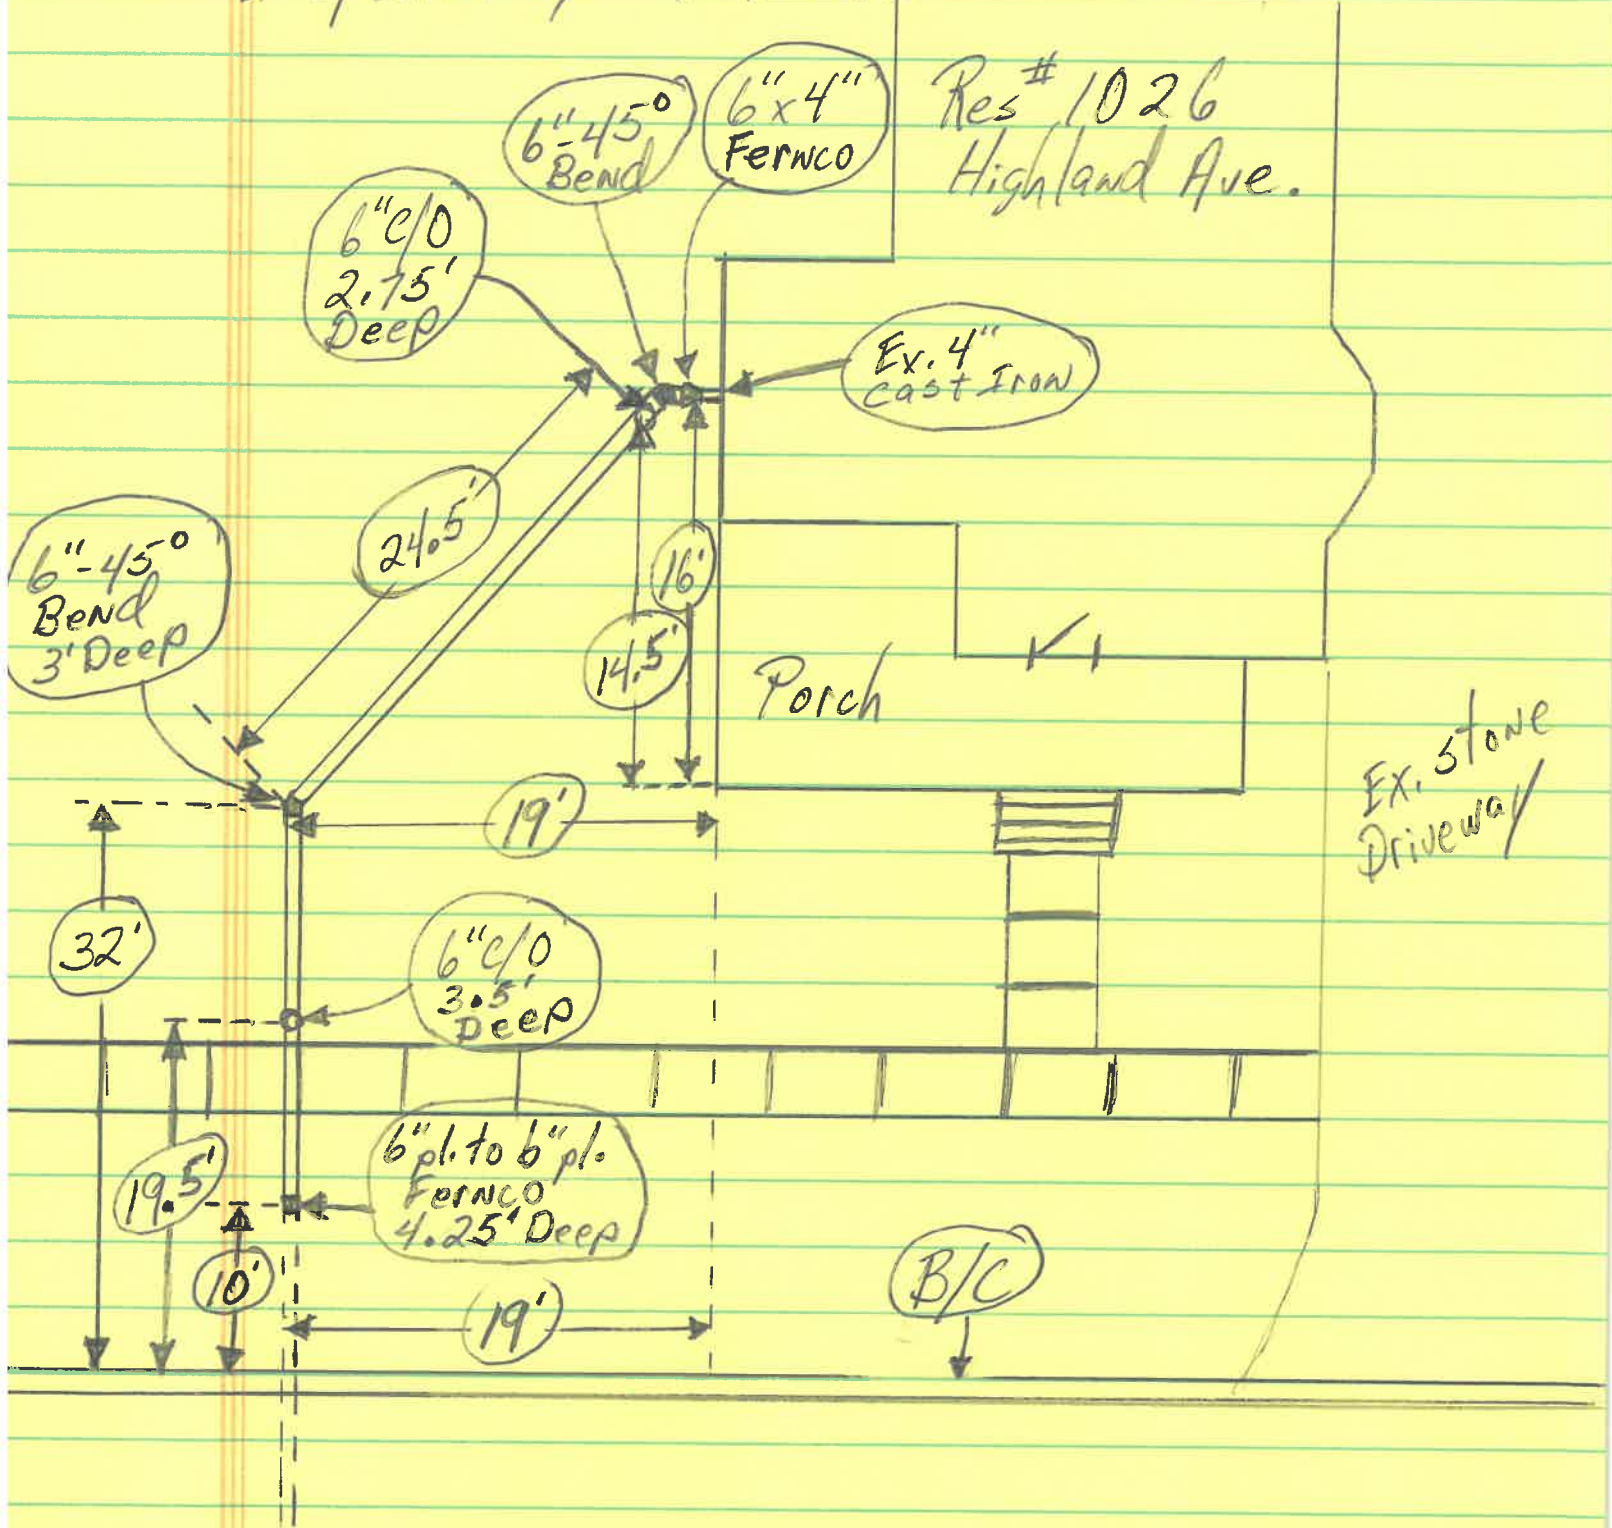 6"-45°
Bend
6"x4"
Fernco
Res# 1026
Highland Ave.
6"C/O
2.75'
Deep
Ex. 4"
cast Iron
24.5'
16'
14.5'
6"-45°
Bend
3' Deep
Porch
Ex. stone
Driveway
19'
32'
6"C/O
3.5'
Deep
6" pl. to 6" pl.
Fernco
4.25' Deep
19.5'
10'
19'
B/C